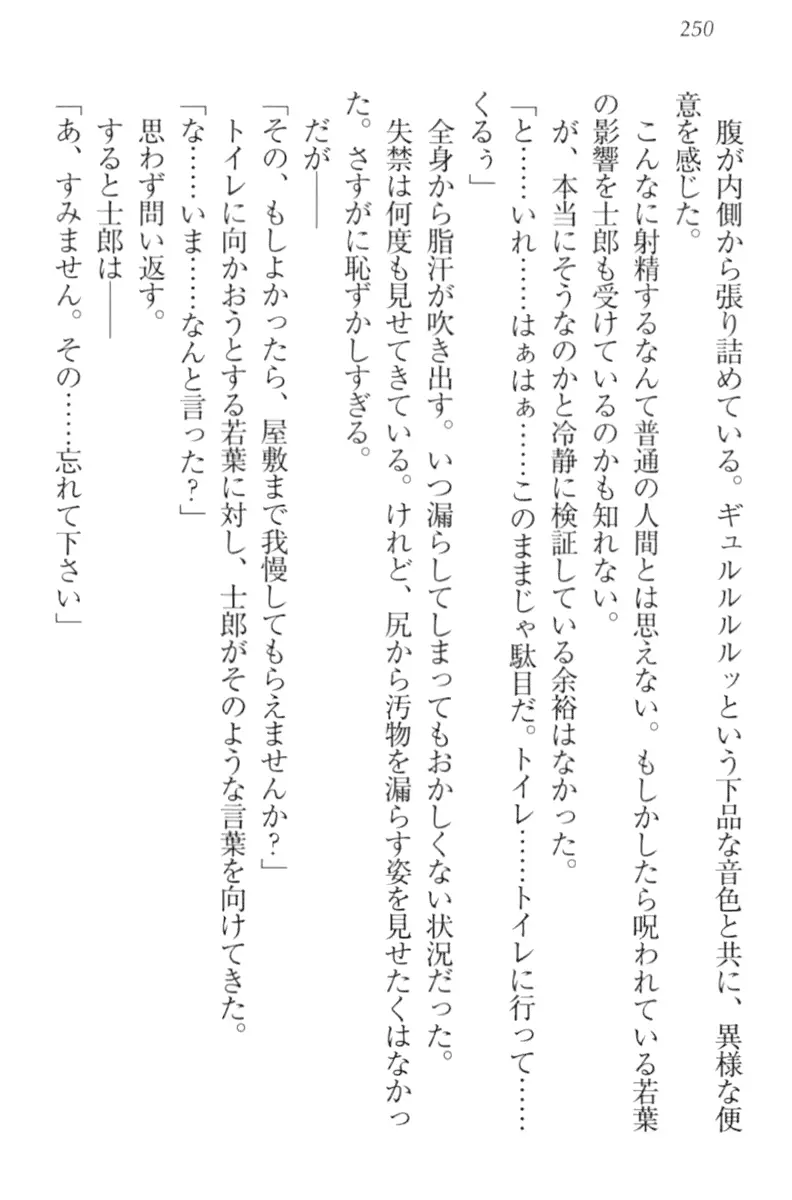 250
腹が内側から張り詰めている。ギュルルルルッという下品な音色と共に、異様な便
意を感じた。
こんなに射精するなんて普通の人間とは思えない。もしかしたら呪われている若葉
の影響を士郎も受けているのかも知れない。
が、本当にそうなのかと冷静に検証している余裕はなかった。
「と……いれ……はぁはぁ……このままじゃ駄目だ。トイレ……トイレに行って……
くるぅ」
全身から脂汗が吹き出す。いつ漏らしてしまってもおかしくない状況だった。
失禁は何度も見せてきている。けれど、尻から汚物を漏らす姿を見せたくはなかっ
た。さすがに恥ずかしすぎる。
だが――
「その、もしよかったら、屋敷まで我慢してもらえませんか？」
トイレに向かおうとする若葉に対し、士郎がそのような言葉を向けてきた。
「な……いま……なんと言った？」
思わず問い返す。
すると士郎は――
「あ、すみません。その……忘れて下さい」